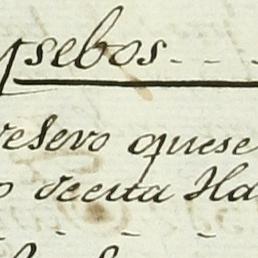 ysebos
resero quese
o decita Ha